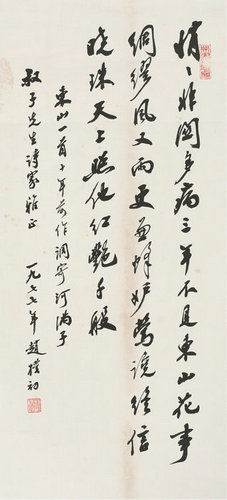 悄〻非關多病三年不見東山花事
綢繆風又雨更兼蜂妒鶯讒終信
曉珠天上照他紅艷千般
東山一首十年前作調寄河滿子
叔子先生詩家雅正
一九七七年趙樸初